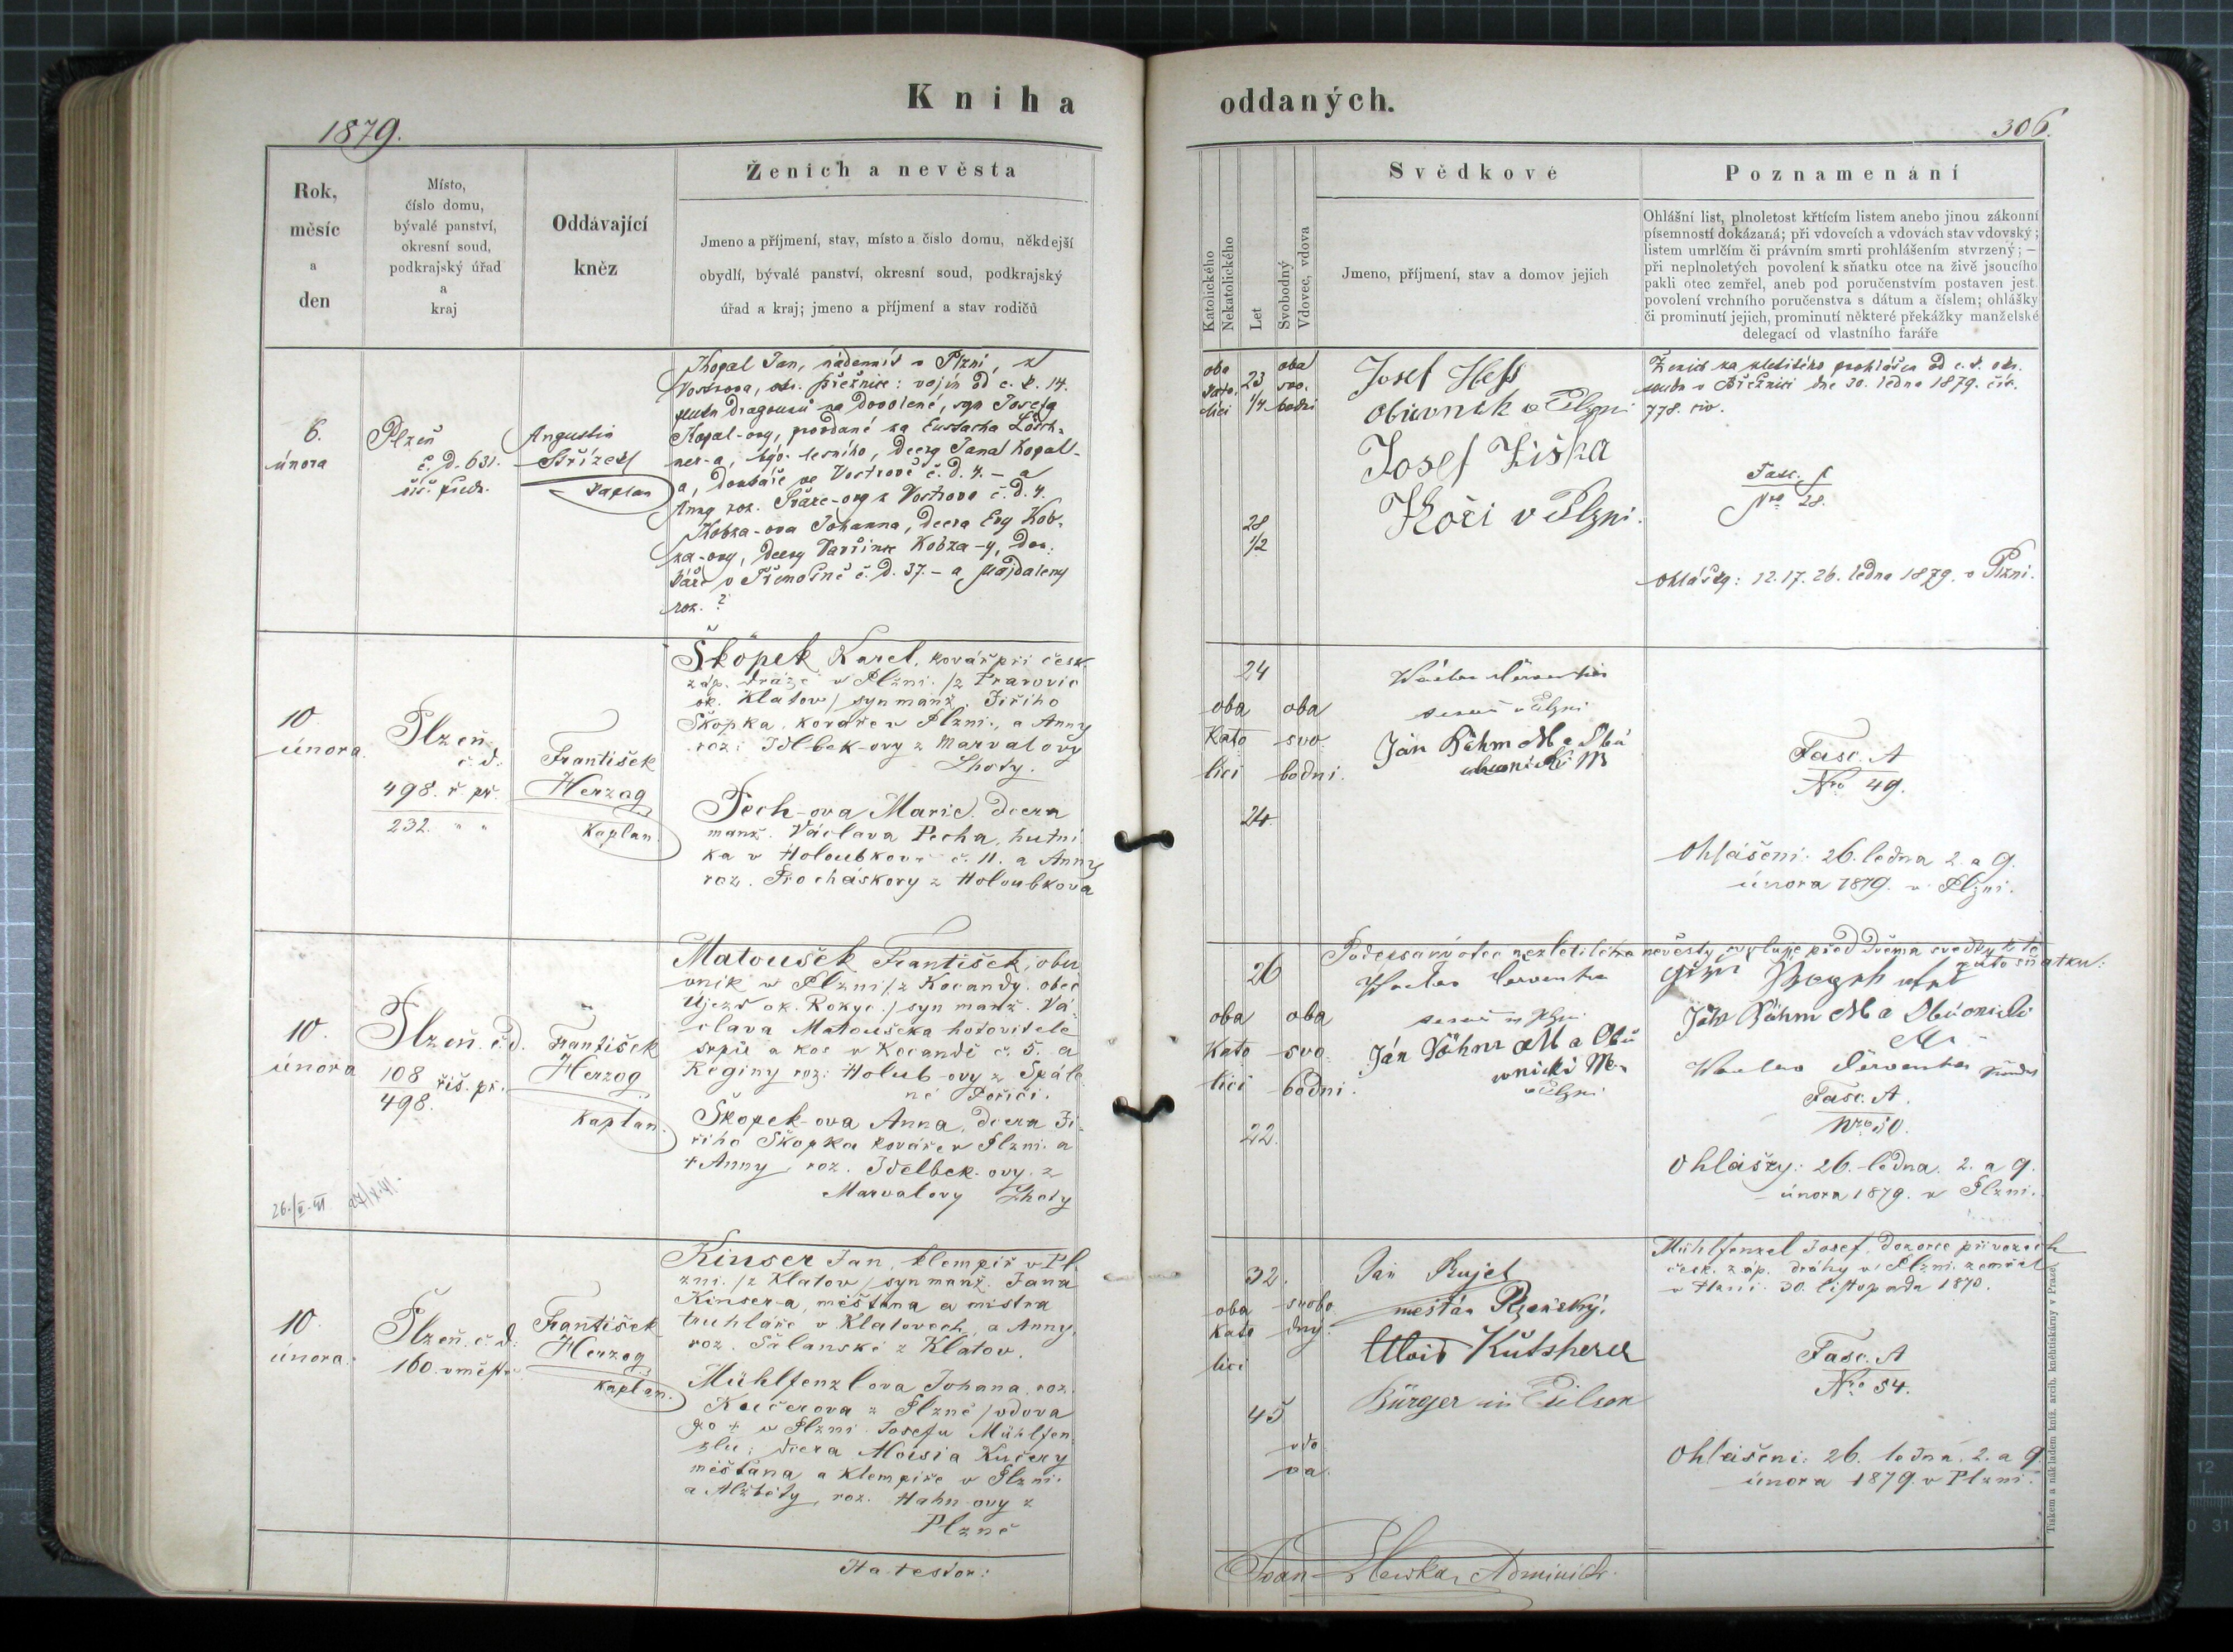 Kniha
oddaných.
1879.
306.
Rok,
měsíc
a
den
Místo,
číslo domu,
bývalé panství,
okresní soud,
podkrajský úřad
a
kraj
Oddávající
kněz
Ženich a nevěsta
Jmeno a příjmení, stav, místo a číslo domu, někdejší
obydlí, bývalé panství, okresní soud, podkrajský
úřad a kraj; jmeno a příjmení a stav rodičů
Katolického
Nekatolického
Let
Svobodný
Vdovec, vdova
Svědkové
Jmeno, příjmení, stav a domov jejich
Poznamenání
Ohlášní list, plnoletost křtícím listem anebo jinou zákonní
písemností dokázaná; při vdovcích a vdovách stav vdovský;
listem umrlčím či právním smrti prohlášením stvrzený; —
při neplnoletých povolení k sňatku otce na živě jsoucího
pakli otec zemřel, aneb pod poručenstvím postaven jest
povolení vrchního poručenstva s dátum a číslem; ohlášky
či prominutí jejich, prominutí některé překážky manželské
delegací od vlastního faráře
6.
února
Plzeň
č. d. 631.
říš. předm.
Augustin
Střízek
kaplan
Kopal Jan, nádenník v Plzni, z
Vostrova, okr. Březnice: vojín od c. k. 14.
pluku dragounů na dovolené, syn Josefy
Kopal-ovy, provdané za Eustacha Lösch-
ner-a, lesního, dcery Jana Kopal-
a, domkáře ve Vostrově č. d. 4. – a
Anny roz. z Vostrova č. d. 4.
Kobza-ova Johanna, dcera Evy Kob-
za-ovy, dcery Vavřince Kobza-y, dom-
káře v Třemošné č. d. 37. – a Majdaleny
roz. ?
oba
kato-
líci
23
1/4
oba
svo-
bodni
28
1/2
Josef Hess
obuvník v Plzni
Josef Žiška
Kočí v Plzni.
Ženich za zletilého prohlášen od c. k. okr.
soudu v Březnici dne 30. ledna 1879. čís.
778. civ.
Fasc. A
Nro 28.
Ohlášky: 12. 17. 26. ledna 1879. v Plzni.
10.
února.
Plzeň
č. d.
498. ř. př.
232. " "
František
Herzog
Kaplan.
Škopek Karel, kovář při česk.
záp. dráze v Plzni. /z
ok. Klatov/ syn manž. Jiřího
Škopka, kováře v Plzni, a Anny
roz. Idlbek-ovy z Marvalovy
Lhoty.
Pech-ova Marie, dcera
manž. Václava Pecha, hutní-
ka v Holoubkově č. 11. a Anny
roz. Procháskovy z Holoubkova
24
oba
Kato
líci
oba
svo
bodni.
24.
v Plzni
Ján Böhm
Fasc. A
Nro 49.
Ohlášení: 26. ledna 2. a 9.
února 1879. v Plzni.
10.
února
Plzeň č. d.
108
498. říš. př.
František
Herzog
Kaplan.
Matoušek František, obu
vník v Plzni /z Kocandy. obec
Ujezd ok. Rokyc./ syn manž. Vá-
clava Matouška hotovitele
srpů a kos v Kocandě č. 5. a
Reginy roz. Holub-ovy z Spále
né Poříčí.
Škopek-ova Anna, dcera Ji-
řího Škopka kováře v Plzni a
+ Anny, roz. Idelbek-ovy z
Marvalovy Lhoty
26
oba
Kato
líci
oba
svo
bodni.
22.
v Plzni
Ján Böhm
v Plzni
Podepsaný otec nezletilé nevěsty před dvěma svědky k to
muto sňatku:
Ján Böhm
Fasc. A.
Nro 50.
Ohlášky: 26. ledna. 2. a 9.
února 1879. v Plzni.
10.
února.
Plzeň č. d.
160. v městě
František
Herzog
Kaplan.
Kinser Jan, klempíř v Pl
zni. /z Klatov/ syn manž. Jana
Kinser-a, měštana a mistra
truhláře v Klatovech, a Anny,
roz. Šalanské z Klatov.
Mühlfenzlova Johana, roz.
Kučerova z Plzně /vdova
po + v Plzni Josefu Mühlfen
zlu; dcera Aloisia Kučery
měštana a klempíře v Plzni.
a Alžběty, roz. Hahn-ovy z
Plzně
32.
oba
kato
líci
svobo
dný.
45
vdo
va.
Jan
měštan Plzeňský.
Alois Kutscherer
Bürger in Pilsen
Mühlfenzel Josef, dozorce při vozech
česk. záp. dráhy v Plzni. zemřel
30. listopadu 1870.
Fasc. A
Nro 54.
Ohlášení: 26. ledna. 2. a 9.
února 1879. v Plzni.
Tiskem a nákladem kníž. arcib. knihtiskárny v Praze.